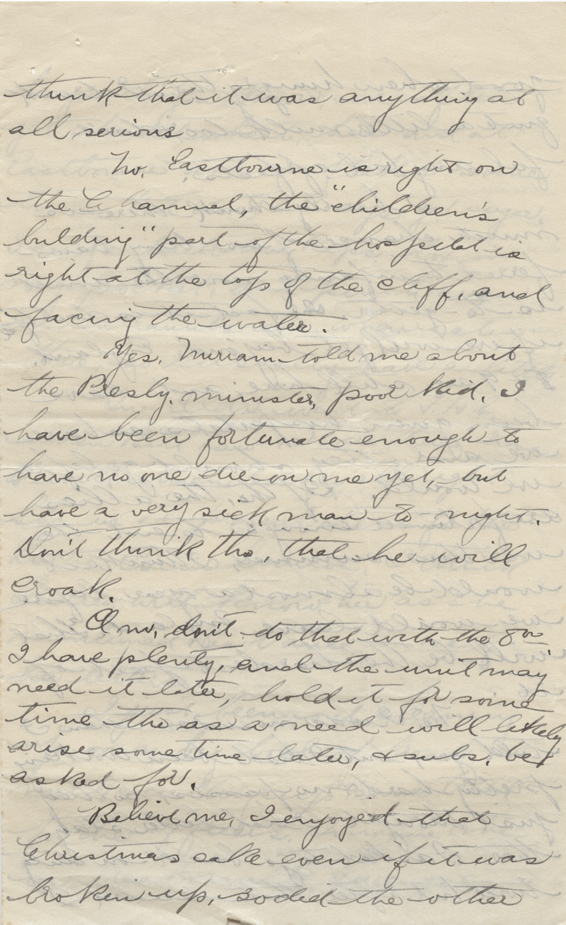 think that it was anything at
all serious
No, Eastbourne is right on
the Channel, the "children's
bulding" part of the hospital is
right at the top of the cliff, and
facing the water.
Yes, Miriam told me about
the Presby. minister, poor kid. I
have been fortunate enough to
have no one die on me yet, but
have a very sick man to night.
Don't think tho, that he will
croak.
no, don't do that with the
I have plenty, and the unit may
need it later, hold it for some
time tho as a need will likely
arise some time later, & subs. be
asked for.
Believe me, I enjoyed that
Christmas cake even if it was
broken up, so did the other